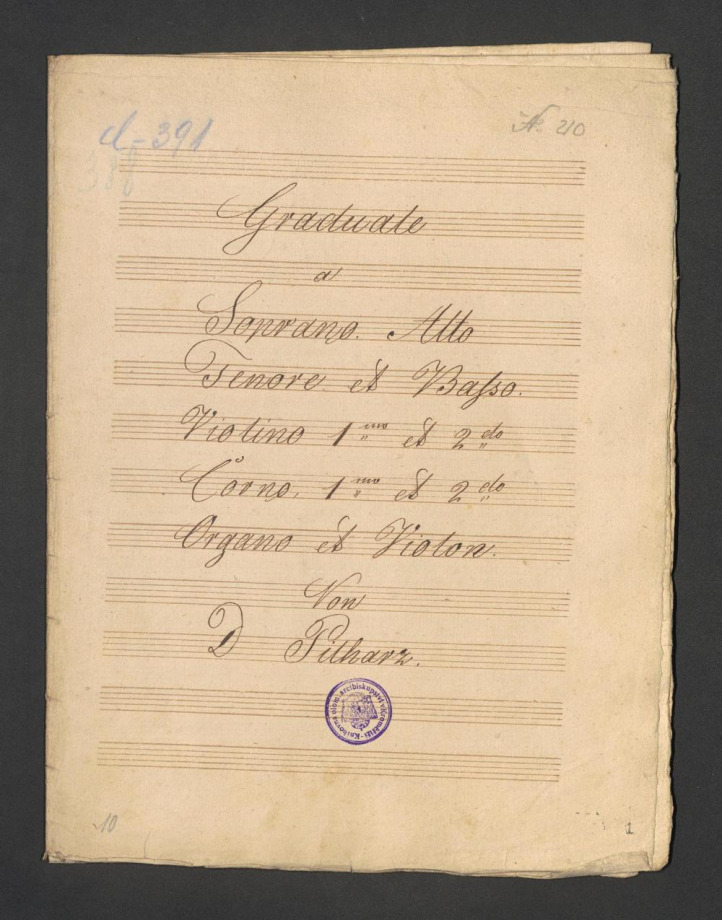 d-391
388
№ 210
Graduale
a
Soprano. Alto
Tenore et Baſso.
Violino 1mo et 2do
Corno, 1mo et 2do
Organo et Violon.
Von
D Pitharz.
Knihovna olom. arcibiskupství v Kroměříži
10
1